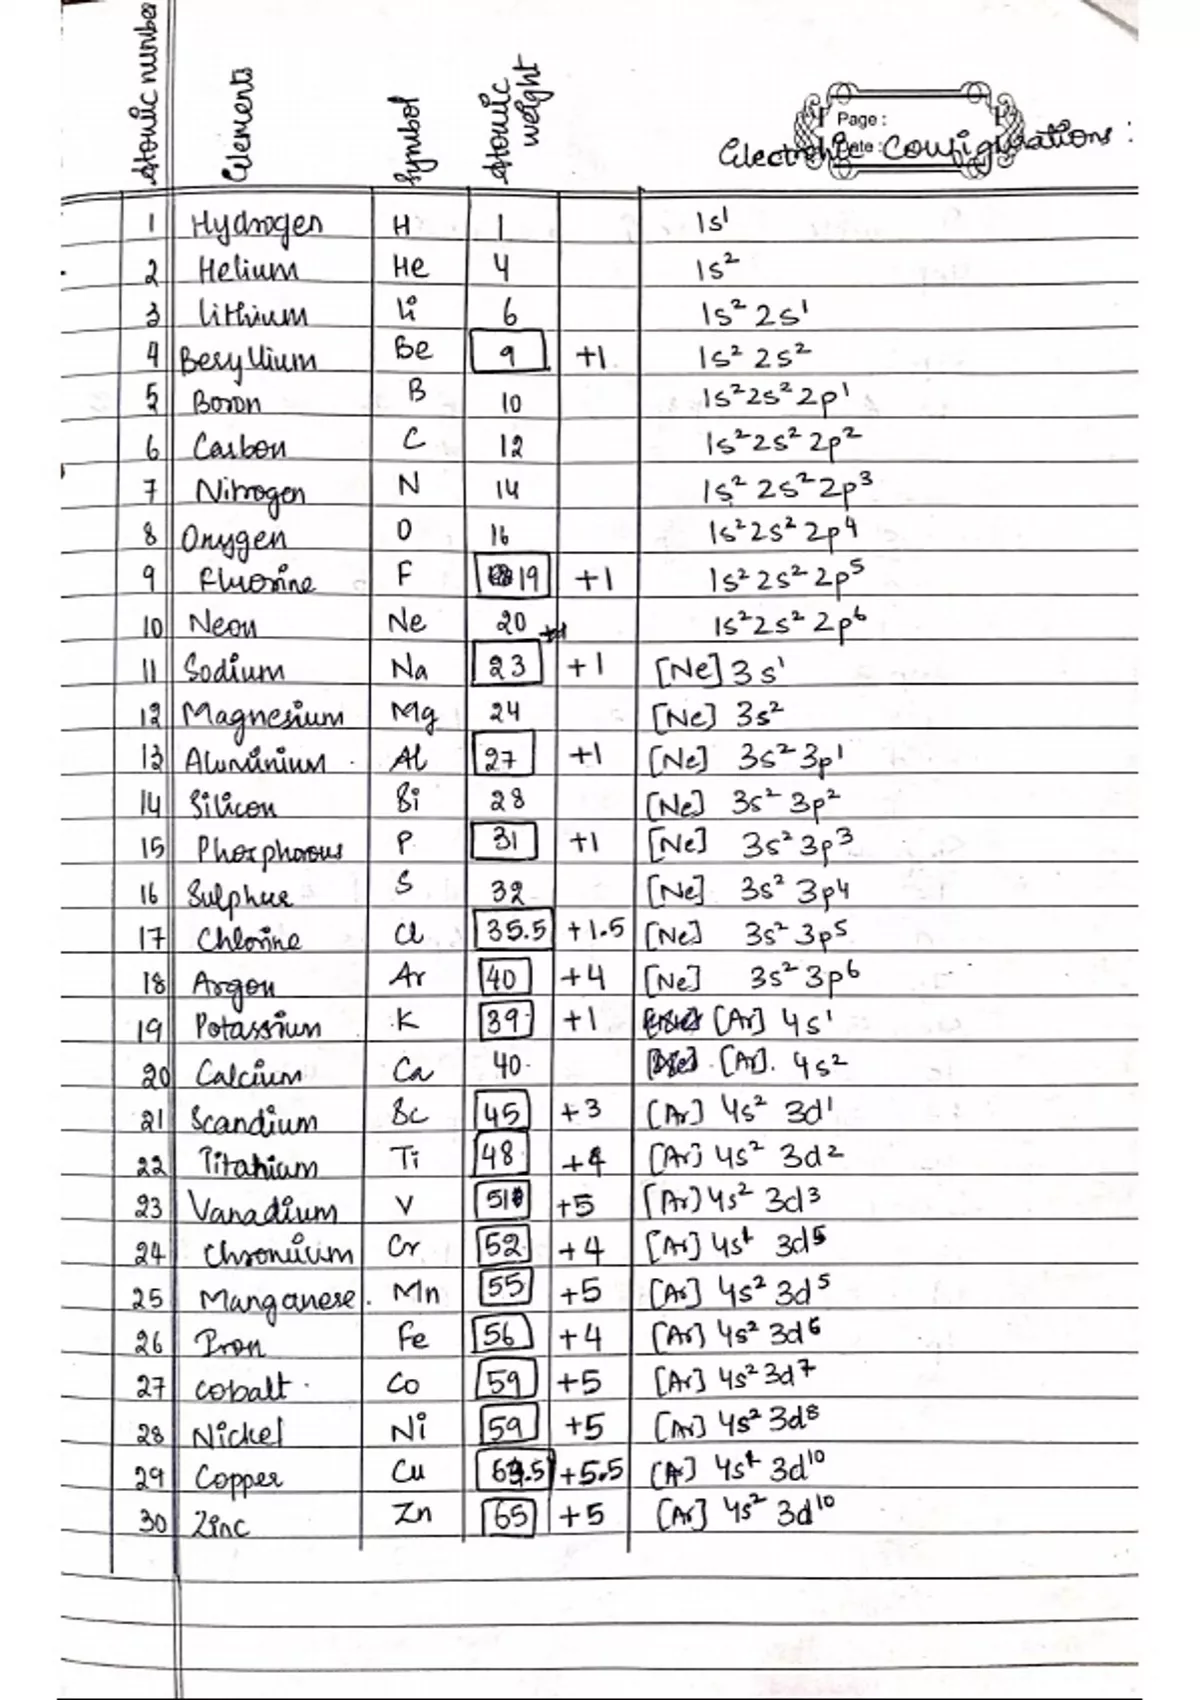 Atomic number Elements Symbol Atomic weight Electronic Configurations :
Page :
ate :
1 Hydrogen H 1 1s¹
2 Helium He 4 1s²
3 Lithium Li 6 1s² 2s¹
4 Beryllium Be 9 +1 1s² 2s²
5 Boron B 10 1s² 2s² 2p¹
6 Carbon C 12 1s² 2s² 2p²
7 Nitrogen N 14 1s² 2s² 2p³
8 Oxygen O 16 1s² 2s² 2p⁴
9 Fluorine F 19 +1 1s² 2s² 2p⁵
10 Neon Ne 20 1s² 2s² 2p⁶
11 Sodium Na 23 +1 [Ne] 3s¹
12 Magnesium Mg 24 [Ne] 3s²
13 Aluminium Al 27 +1 [Ne] 3s² 3p¹
14 Silicon Si 28 [Ne] 3s² 3p²
15 Phosphorous P 31 +1 [Ne] 3s² 3p³
16 Sulphur S 32 [Ne] 3s² 3p⁴
17 Chlorine Cl 35.5 +1.5 [Ne] 3s² 3p⁵
18 Argon Ar 40 +4 [Ne] 3s² 3p⁶
19 Potassium K 39 +1 [Ar] 4s¹
20 Calcium Ca 40 [Ar]. 4s²
21 Scandium Sc 45 +3 [Ar] 4s² 3d¹
22 Titanium Ti 48 +4 [Ar] 4s² 3d²
23 Vanadium V 51 +5 [Ar] 4s² 3d³
24 Chromium Cr 52 +4 [Ar] 4s¹ 3d⁵
25 Manganese. Mn 55 +5 [Ar] 4s² 3d⁵
26 Iron Fe 56 +4 [Ar] 4s² 3d⁶
27 Cobalt Co 59 +5 [Ar] 4s² 3d⁷
28 Nickel Ni 59 +5 [Ar] 4s² 3d⁸
29 Copper Cu 63.5 +5.5 [Ar] 4s¹ 3d¹⁰
30 Zinc Zn 65 +5 [Ar] 4s² 3d¹⁰